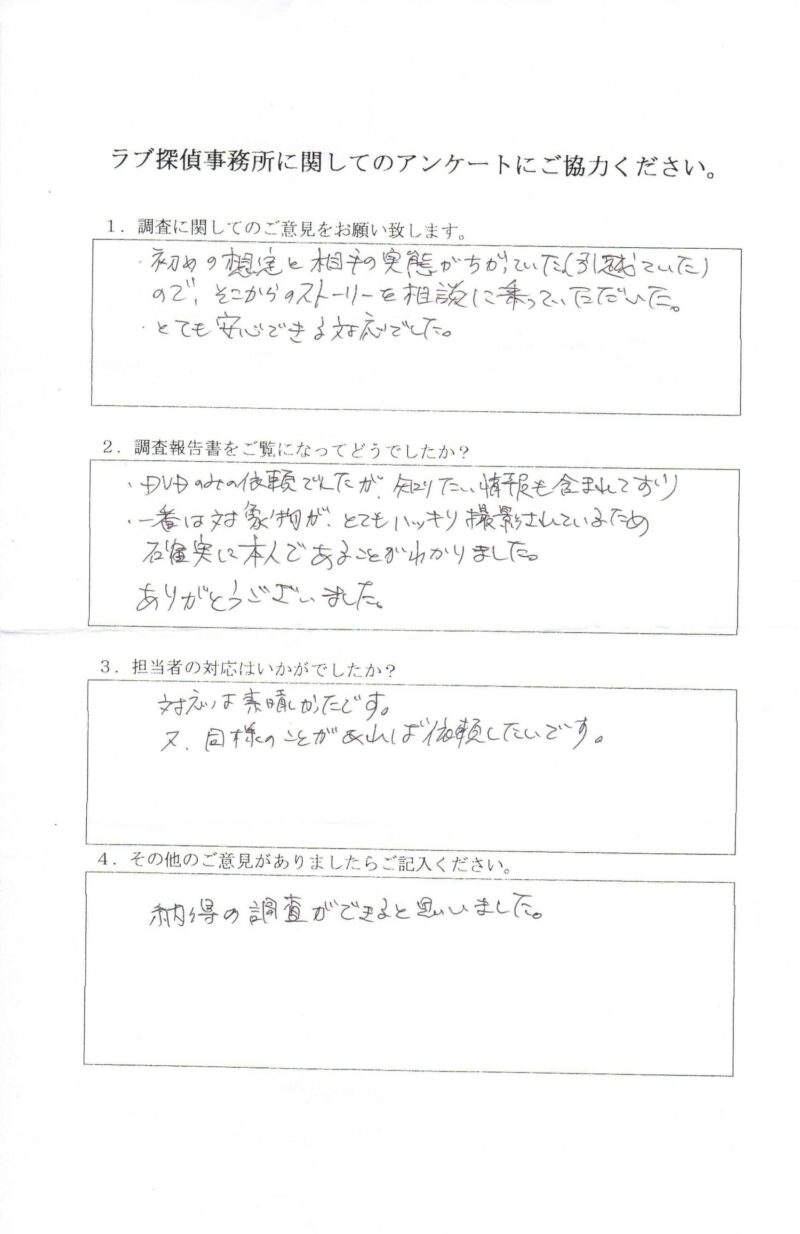 ラブ探偵事務所に関してのアンケートにご協力ください。
1．調査に関してのご意見をお願い致します。
・初めの想定と相手の実態がちがっていた(引越していた)
ので、そこからのストーリーを相談に乗っていただいた。
・とても安心できる対応でした。
2．調査報告書をご覧になってどうでしたか？
・DVDのみの依頼でしたが、知りたい情報も含まれており
・一番は対象物が、とてもハッキリ撮影されているため
確実に本人であることがわかりました。
ありがとうございました。
3．担当者の対応はいかがでしたか？
対応は素晴しかったです。
又、同様のことがあれば依頼したいです。
4．その他のご意見がありましたらご記入ください。
納得の調査ができると思いました。